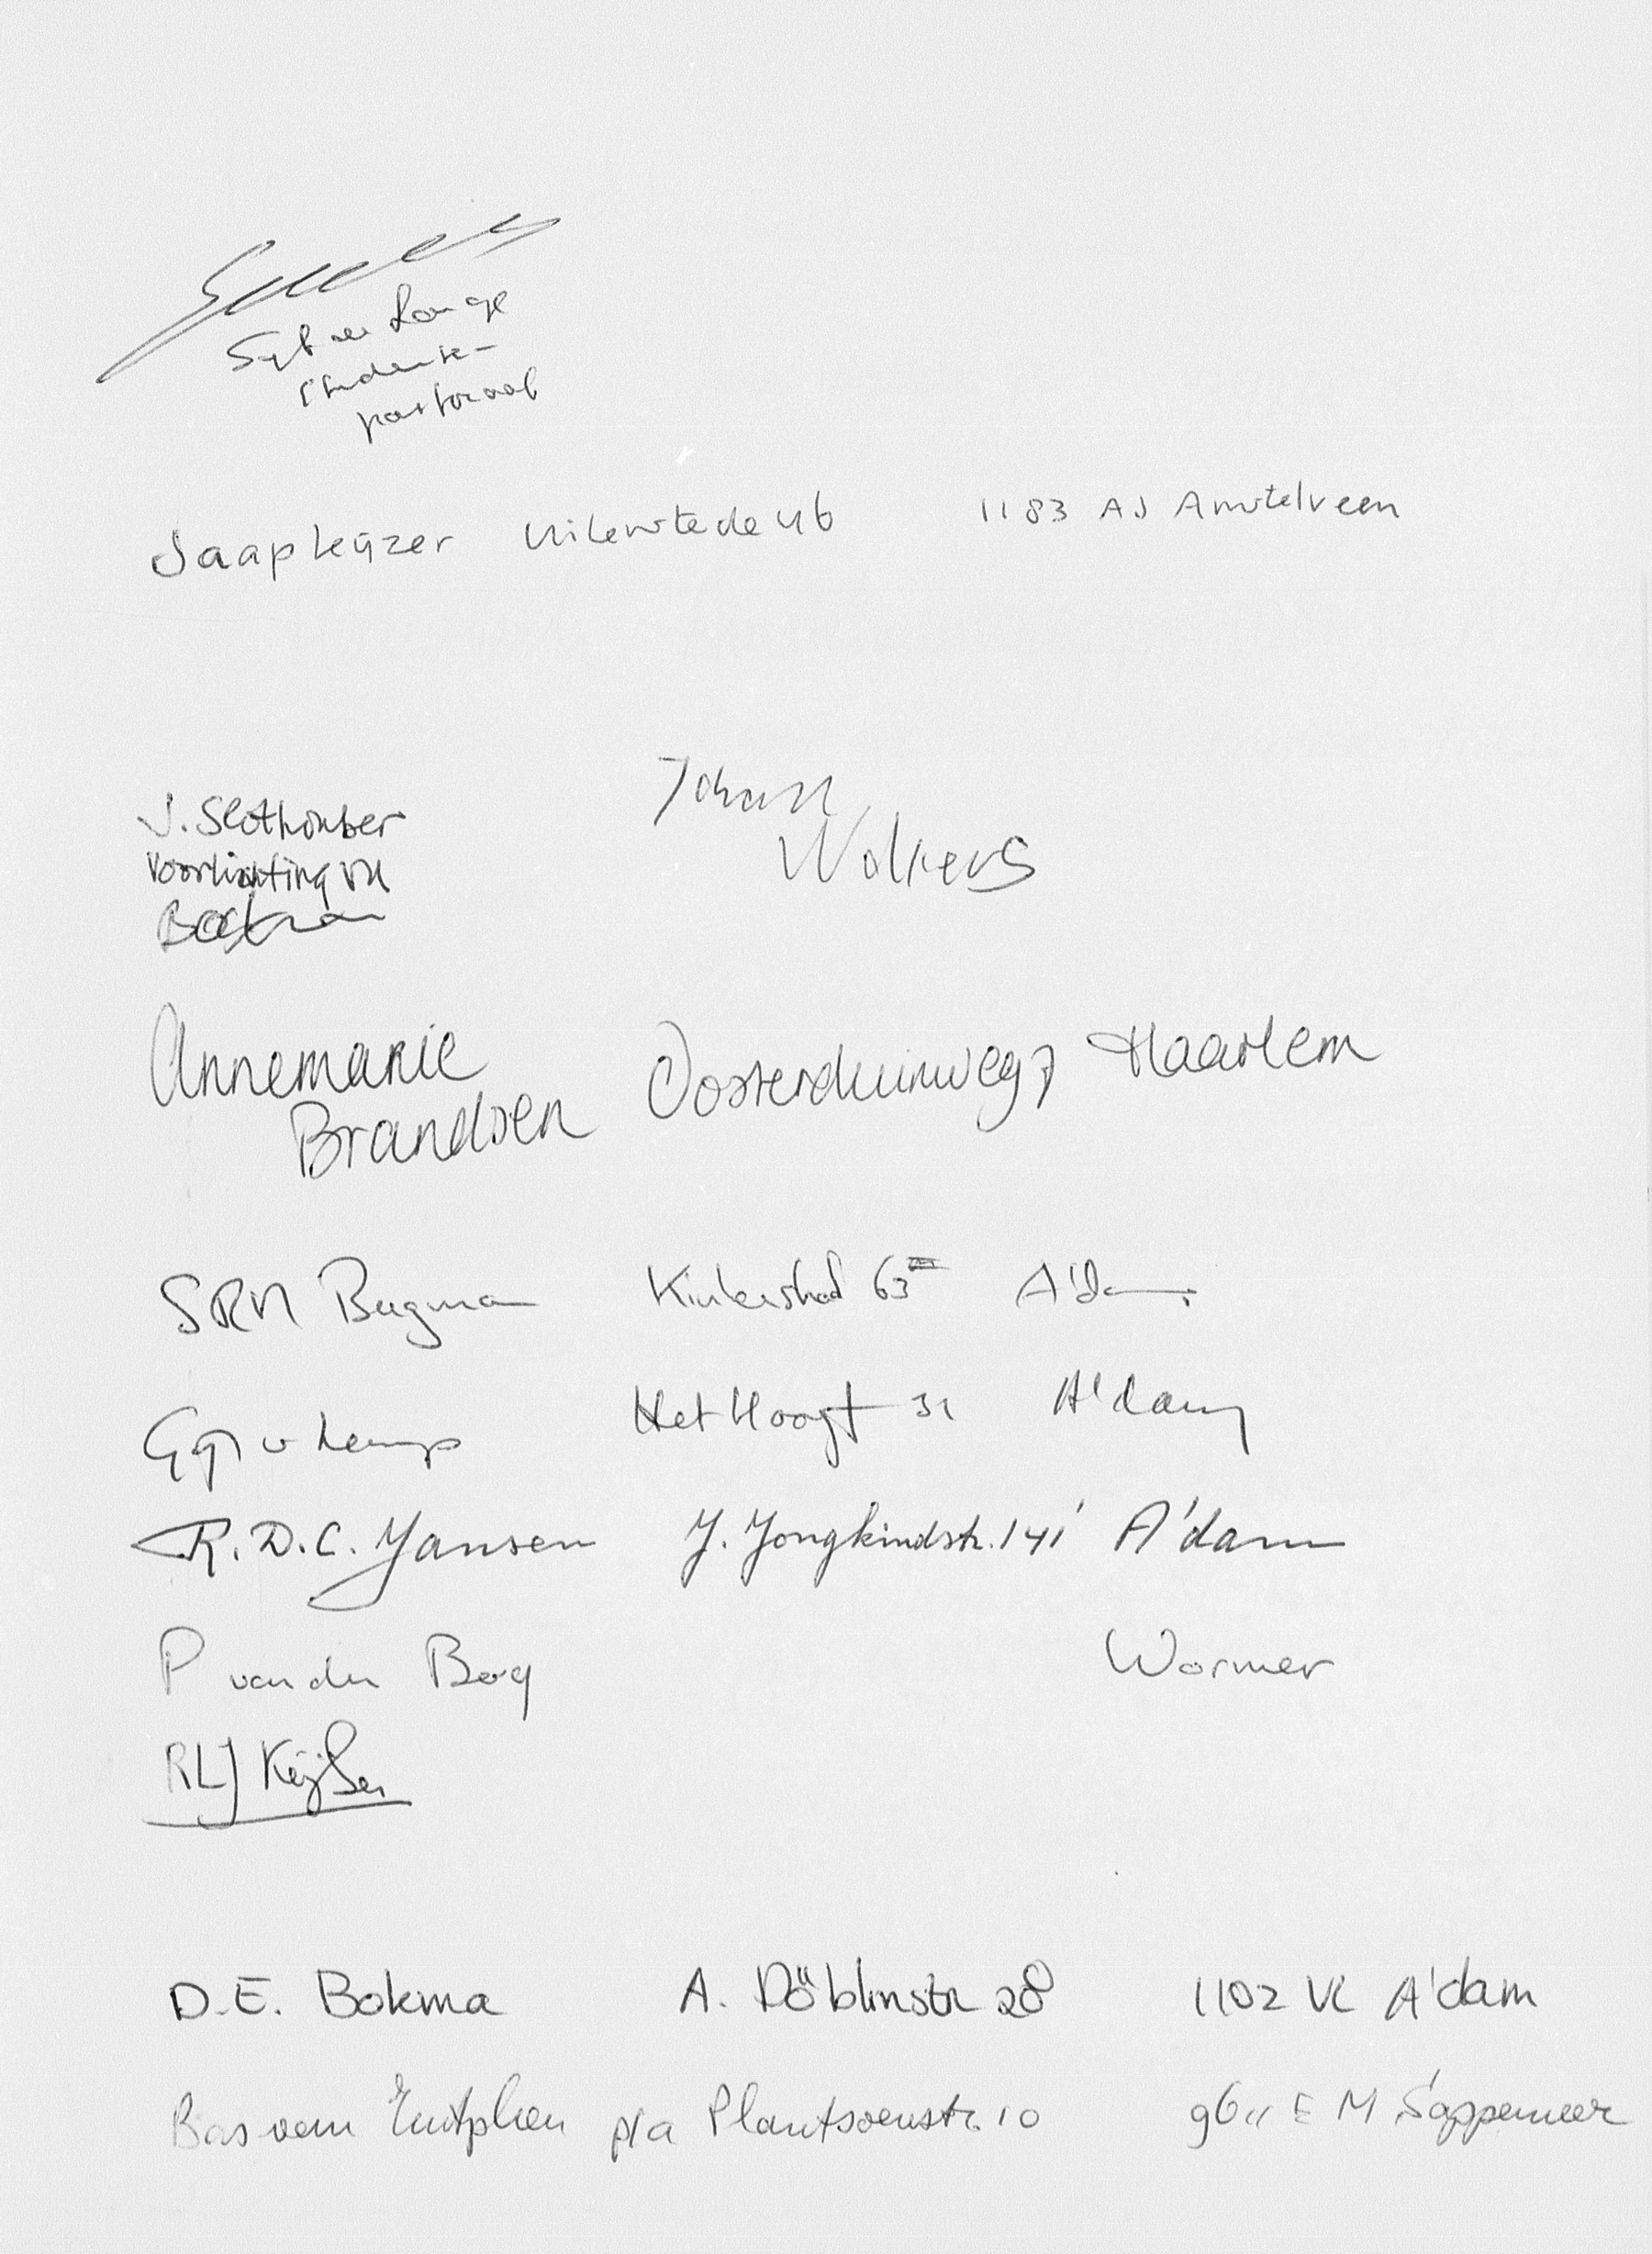 Sybe de Lange
studente-
pastoraal
Jaap Keijzer Uilenstede 46 1183 AJ Amstelveen
J. Slothouber
Voorlichting VU
Johan
Wolkers
Annemarie
Brandsen Oosterduinweg 7 Haarlem
SRN A'dam
Het Hoogt 31 A'dam
R.D.C. Jansen J. Jongkindstr. 141' A'dam
P van der Borg Wormer
RLJ Keijser
D.E. Bokma A. Döblinstr 28 1102 VC A'dam
Bas van Zutphen p/a Plantsoenstr. 10 9611 EM Sappemeer